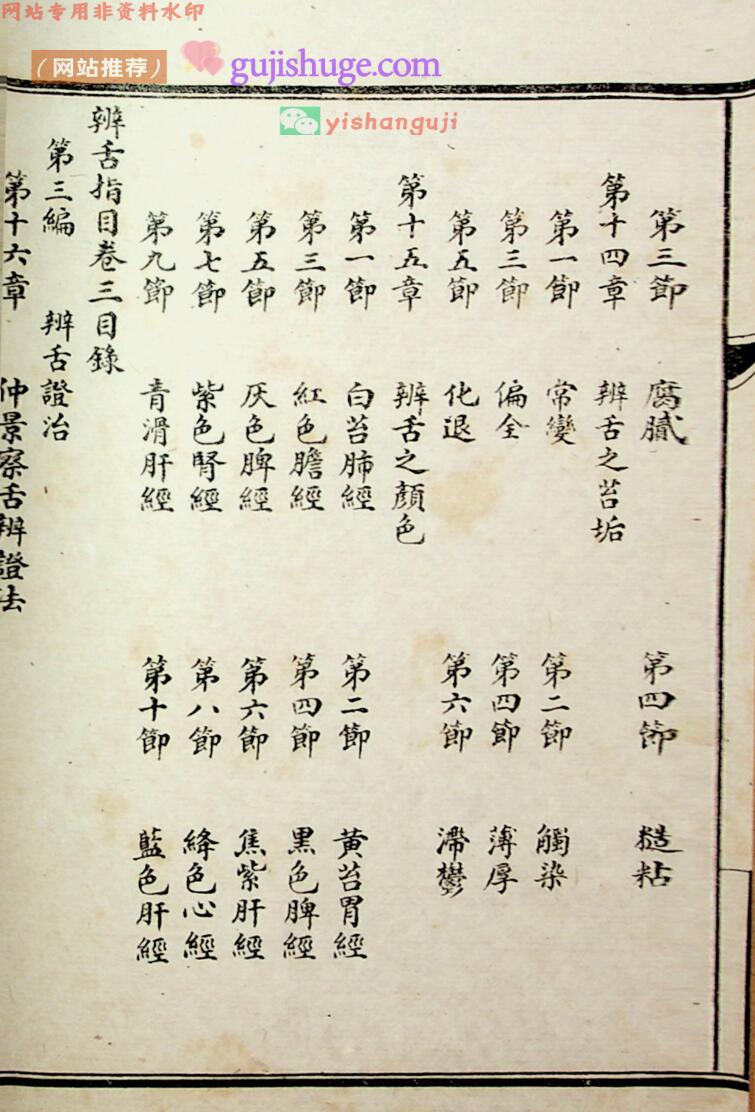 网站专用非资料水印
（网站推荐）
gujishuge.com
yishanguji
第三節 腐膩 第四節 糙粘
第十四章 辨舌之苔垢
第一節 常變 第二節 觸染
第三節 偏全 第四節 薄厚
第五節 化退 第六節 滯鬱
第十五章 辨舌之顏色
第一節 白苔肺經 第二節 黄苔胃經
第三節 紅色膽經 第四節 黑色脾經
第五節 灰色脾經 第六節 焦紫肝經
第七節 紫色腎經 第八節 絳色心經
第九節 青滑肝經 第十節 藍色肝經
辨舌指目卷三目錄
第三編 辨舌證治
第十六章 仲景察舌辨證法